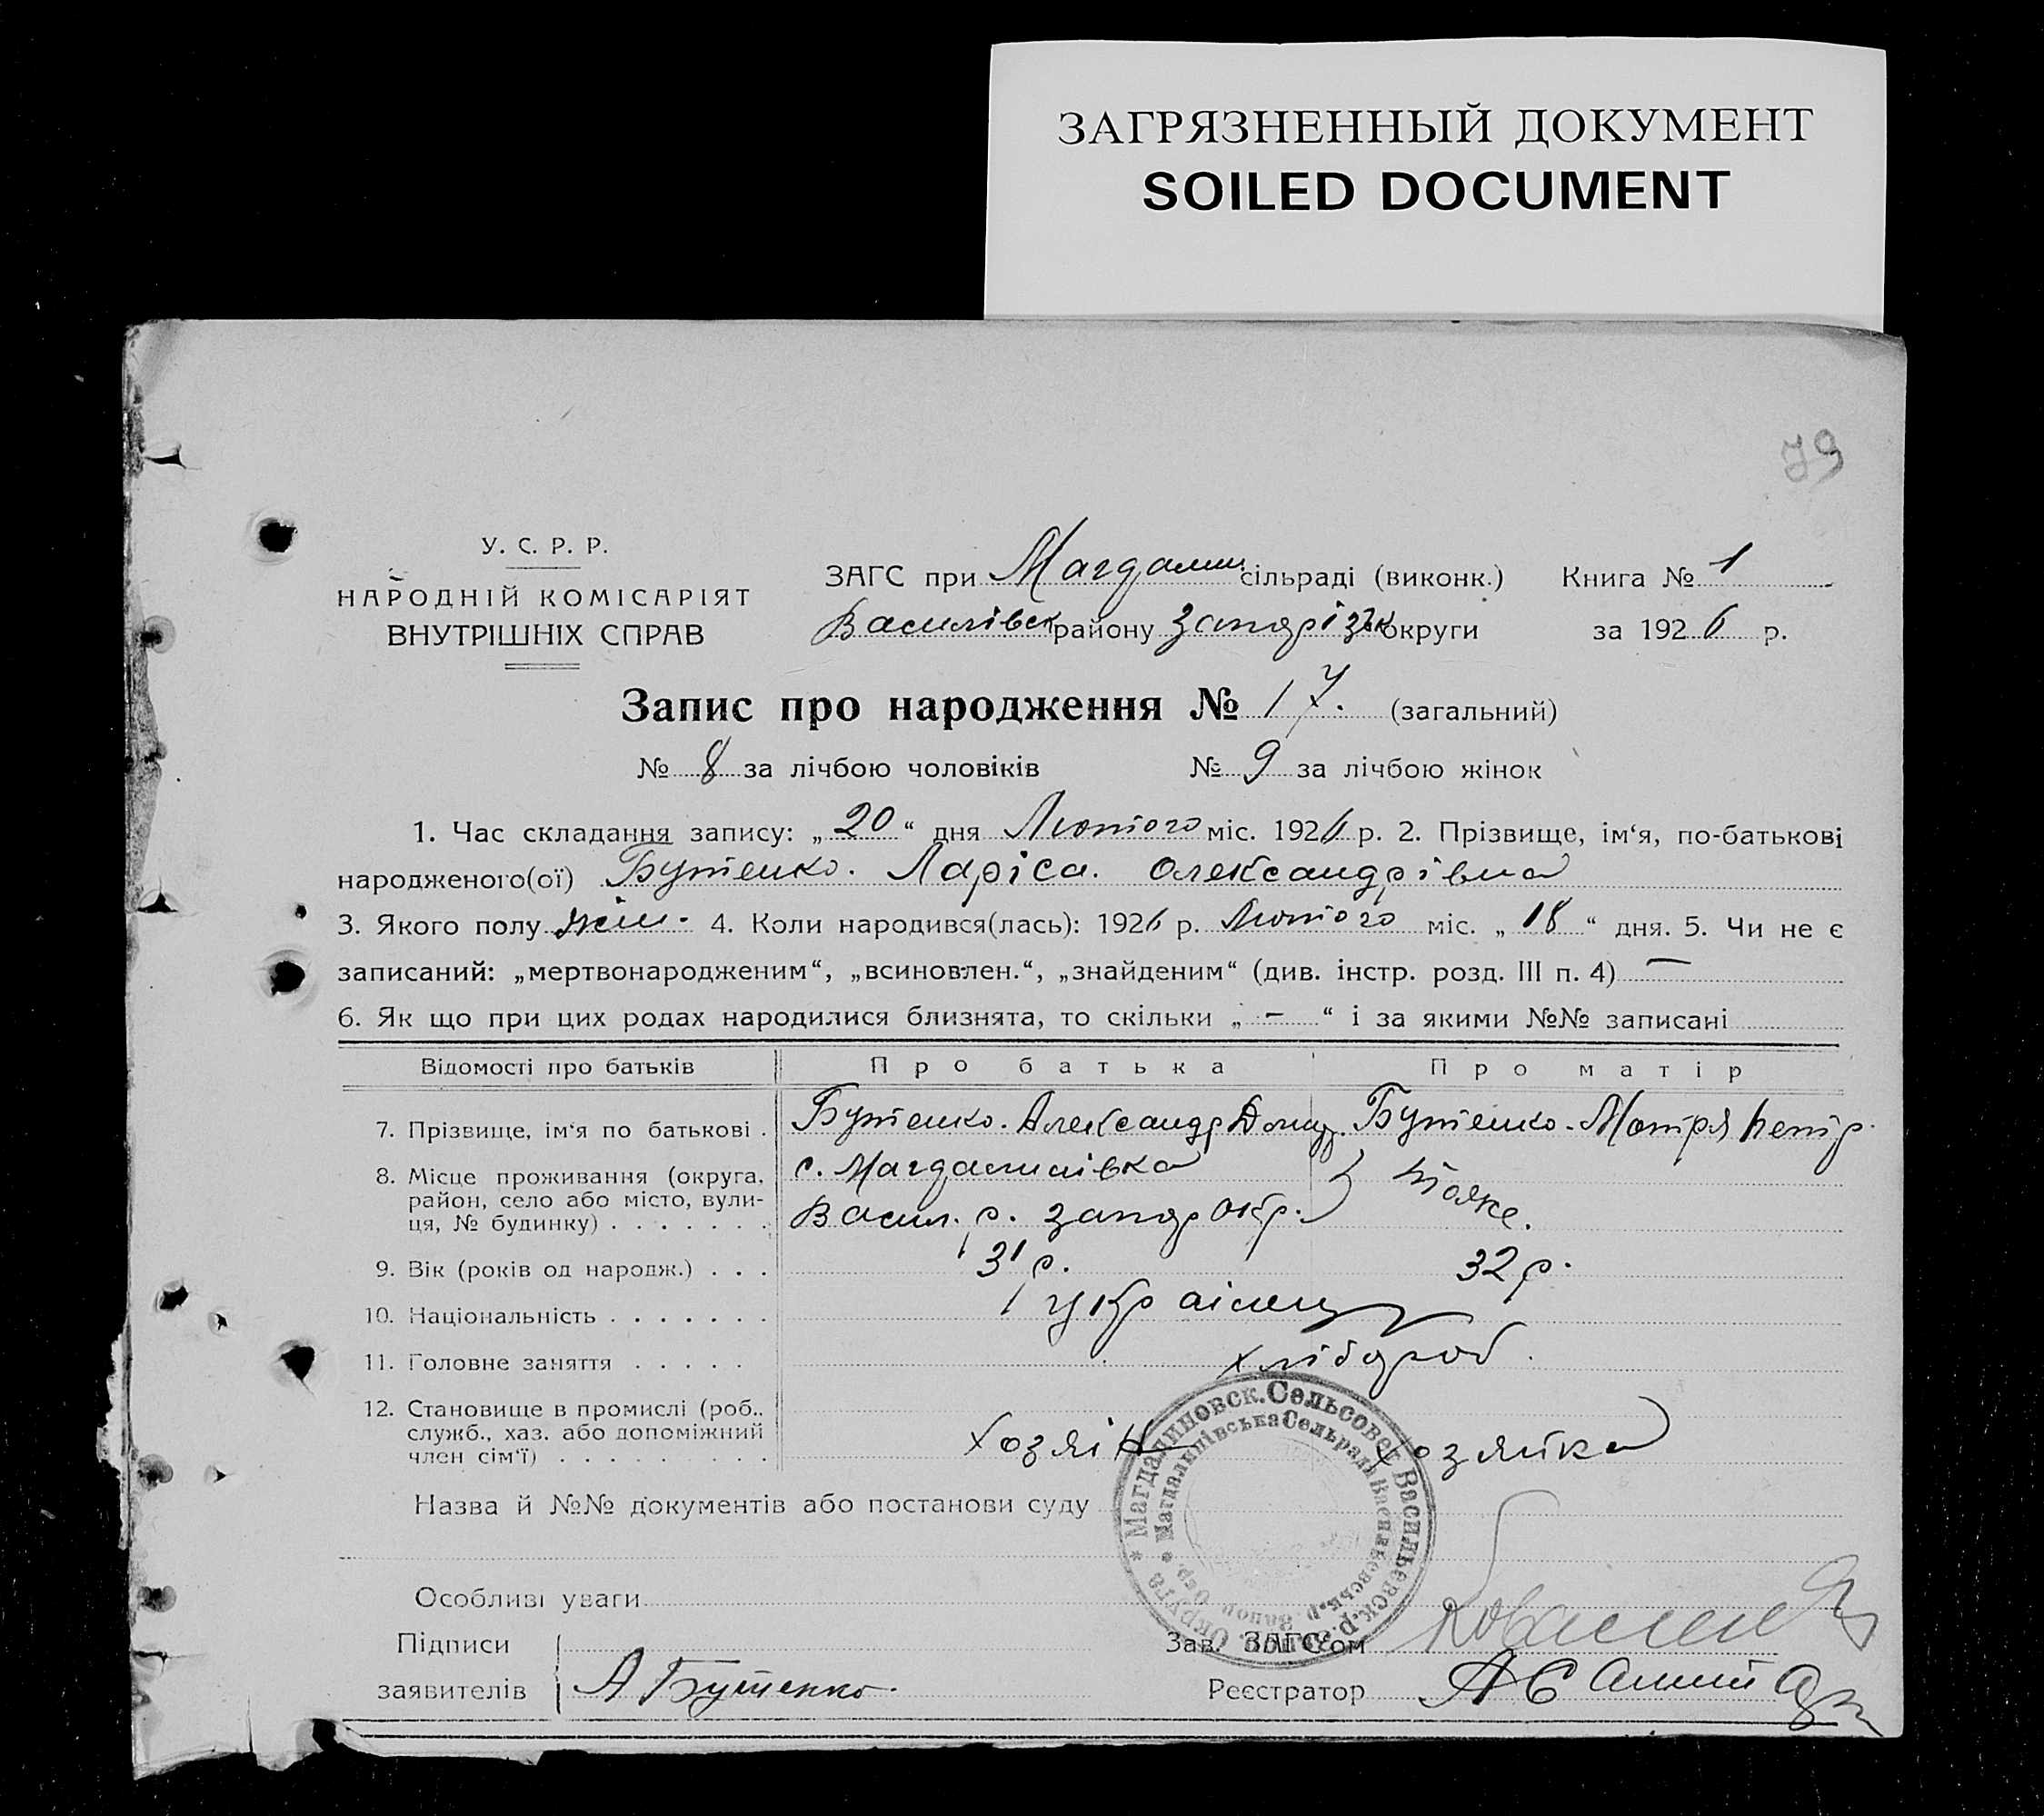 ЗАГРЯЗНЕННЫЙ ДОКУМЕНТ
SOILED DOCUMENT
79
У. С. Р. Р.
НАРОДНІЙ КОМІСАРІЯТ
ВНУТРІШНІХ СПРАВ
ЗАГС при Магдалин сільраді (виконк.) Книга № 1
Василівськ району Запорізьк округи за 1926 р.
Запис про народження № 17. (загальний)
№ 8 за лічбою чоловіків № 9 за лічбою жінок
1. Час складання запису: „20“ дня Лютого міс. 1926 р. 2. Прізвище, ім‘я, по-батькові
народженого(ої) Бутенко. Ларіса. Олександрівна
3. Якого полу жін. 4. Коли народився(лась): 1926 р. Лютого міс. „18“ дня. 5. Чи не є
записаний: „мертвонародженим“, „всиновлен.“, „знайденим“ (див. інстр. розд. III п. 4) —
6. Як що при цих родах народилися близнята, то скільки „ - “ і за якими №№ записані
Відомості про батьків Про батька Про матір
7. Прізвище, ім‘я по батькові . Бутенко. Александр Бутенко. Мотря Петр.
8. Місце проживання (округа, район, село або місто, вулиця, № будинку) . . . . . . . с. Магдалинівка Васил. р. Запор окр. } тоже.
9. Вік (років од народж.) . . . 31 р. 32 р.
10. Національність . . . . . . . українц
11. Головне заняття . . . . . хлібороб.
12. Становище в промислі (роб., служб., хаз. або допоміжний член сім‘ї) . . . . . . . . . хозяін хозяйка
Назва й №№ документів або постанови суду
Магдалиновск. Сельсовет Васильевск. р. Запор. Округа
Магдалинівська Сельрада Васильевськ. р. Запор. Окр.
Особливі уваги
Підписи
заявителів А Бутенко.
Зав. ЗАГС‘ом
Реєстратор